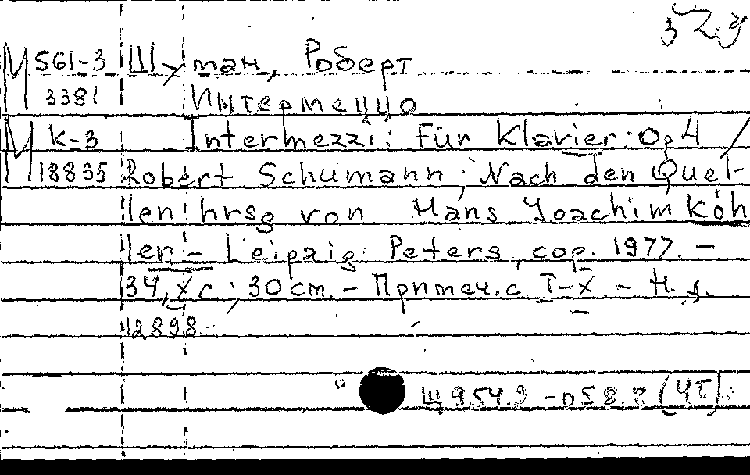 329
М 561-3 Шуман, Роберт
3381 Интермеццо
М К-3 Intermezzi: für Klavier: Op 4 /
18835 Robert Schumann; Nach den Quel-
len hrsg von Hans Joachim Köh
ler - Leipzig: Peters, cop. 1977. -
34, X с; 30 cm. - Примеч. с I-X - Н. д.
12898
Щ954.2-058.2 (4Г)